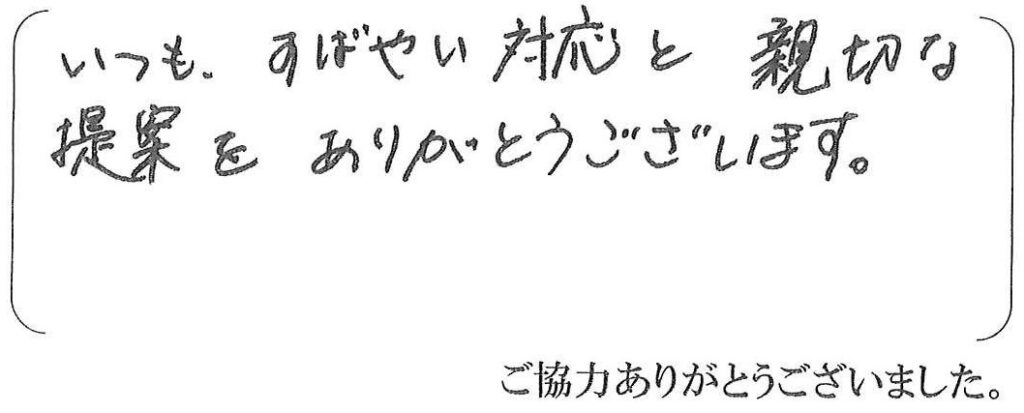 いつも、すばやい対応と親切な
提案をありがとうございます。
ご協力ありがとうございました。